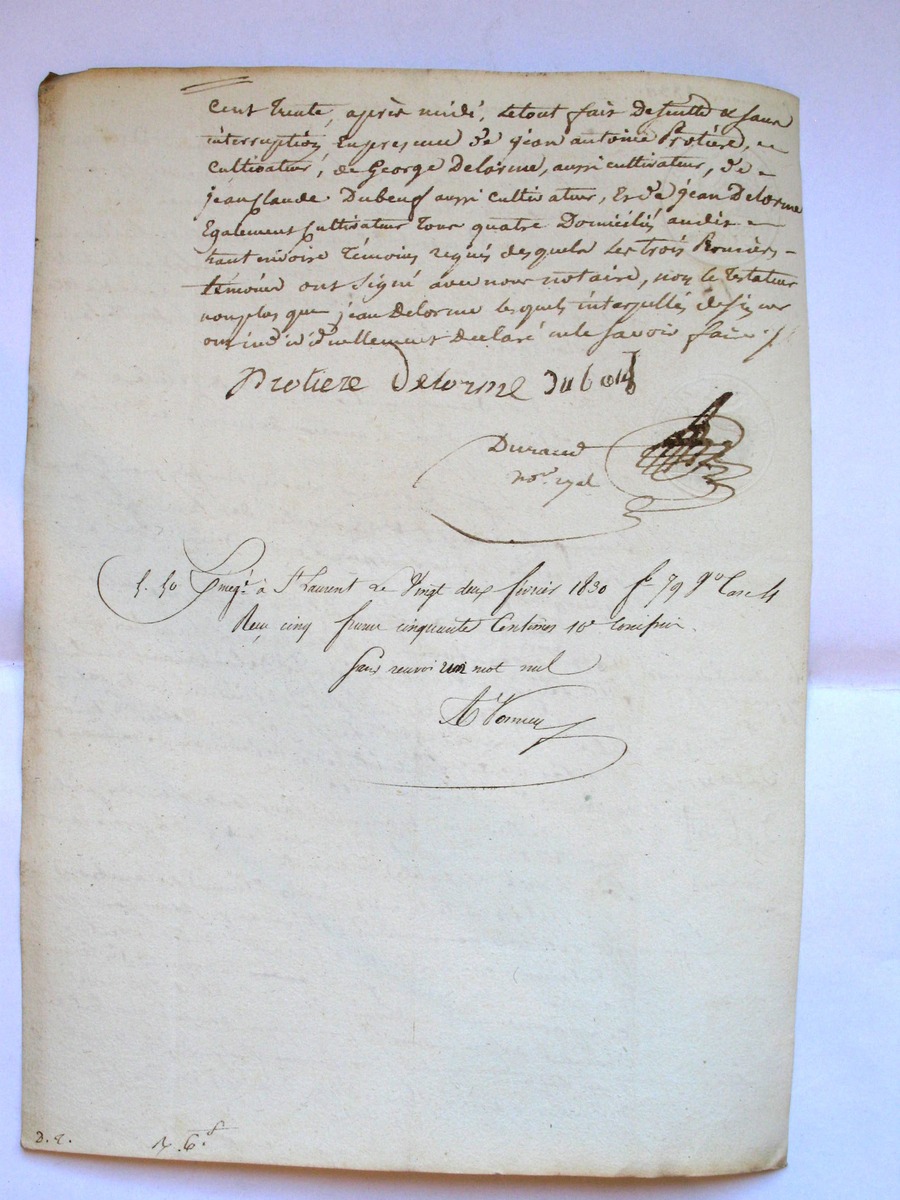 cent trente, après midi, le tout fait de suitte & sans
interruption, en presence de jean antoine Protière,
cultivateur, de George Delorme, aussi cultivateur, de
jean Claude Dubeuf aussi cultivateur, et de jean Delorme
Egalement Cultivateur tous quatre Domiciliés audit
haut envoire témoins requis desquels les trois premiers
témoins ont signé avec nous notaire, non le testateur
non plus que jean Delorme lesquels interpellés de signer
ont individuellement declaré ne le savoir faire
protiere Delorme Dubeuf
Durand
nore. ryal
5. 50 Enregé. à St Laurent le Vingt deux février 1830 fo 79 Vo Case 4
Reçu cinq francs cinquante Centimes 10e Compris.
sans renvoi un mot nul
D. E.